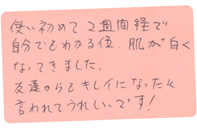 使い初めて2週間経で
自分でもわかる位、肌が白く
なってきました。
友達からもキレイになったと
言われてうれしいです!